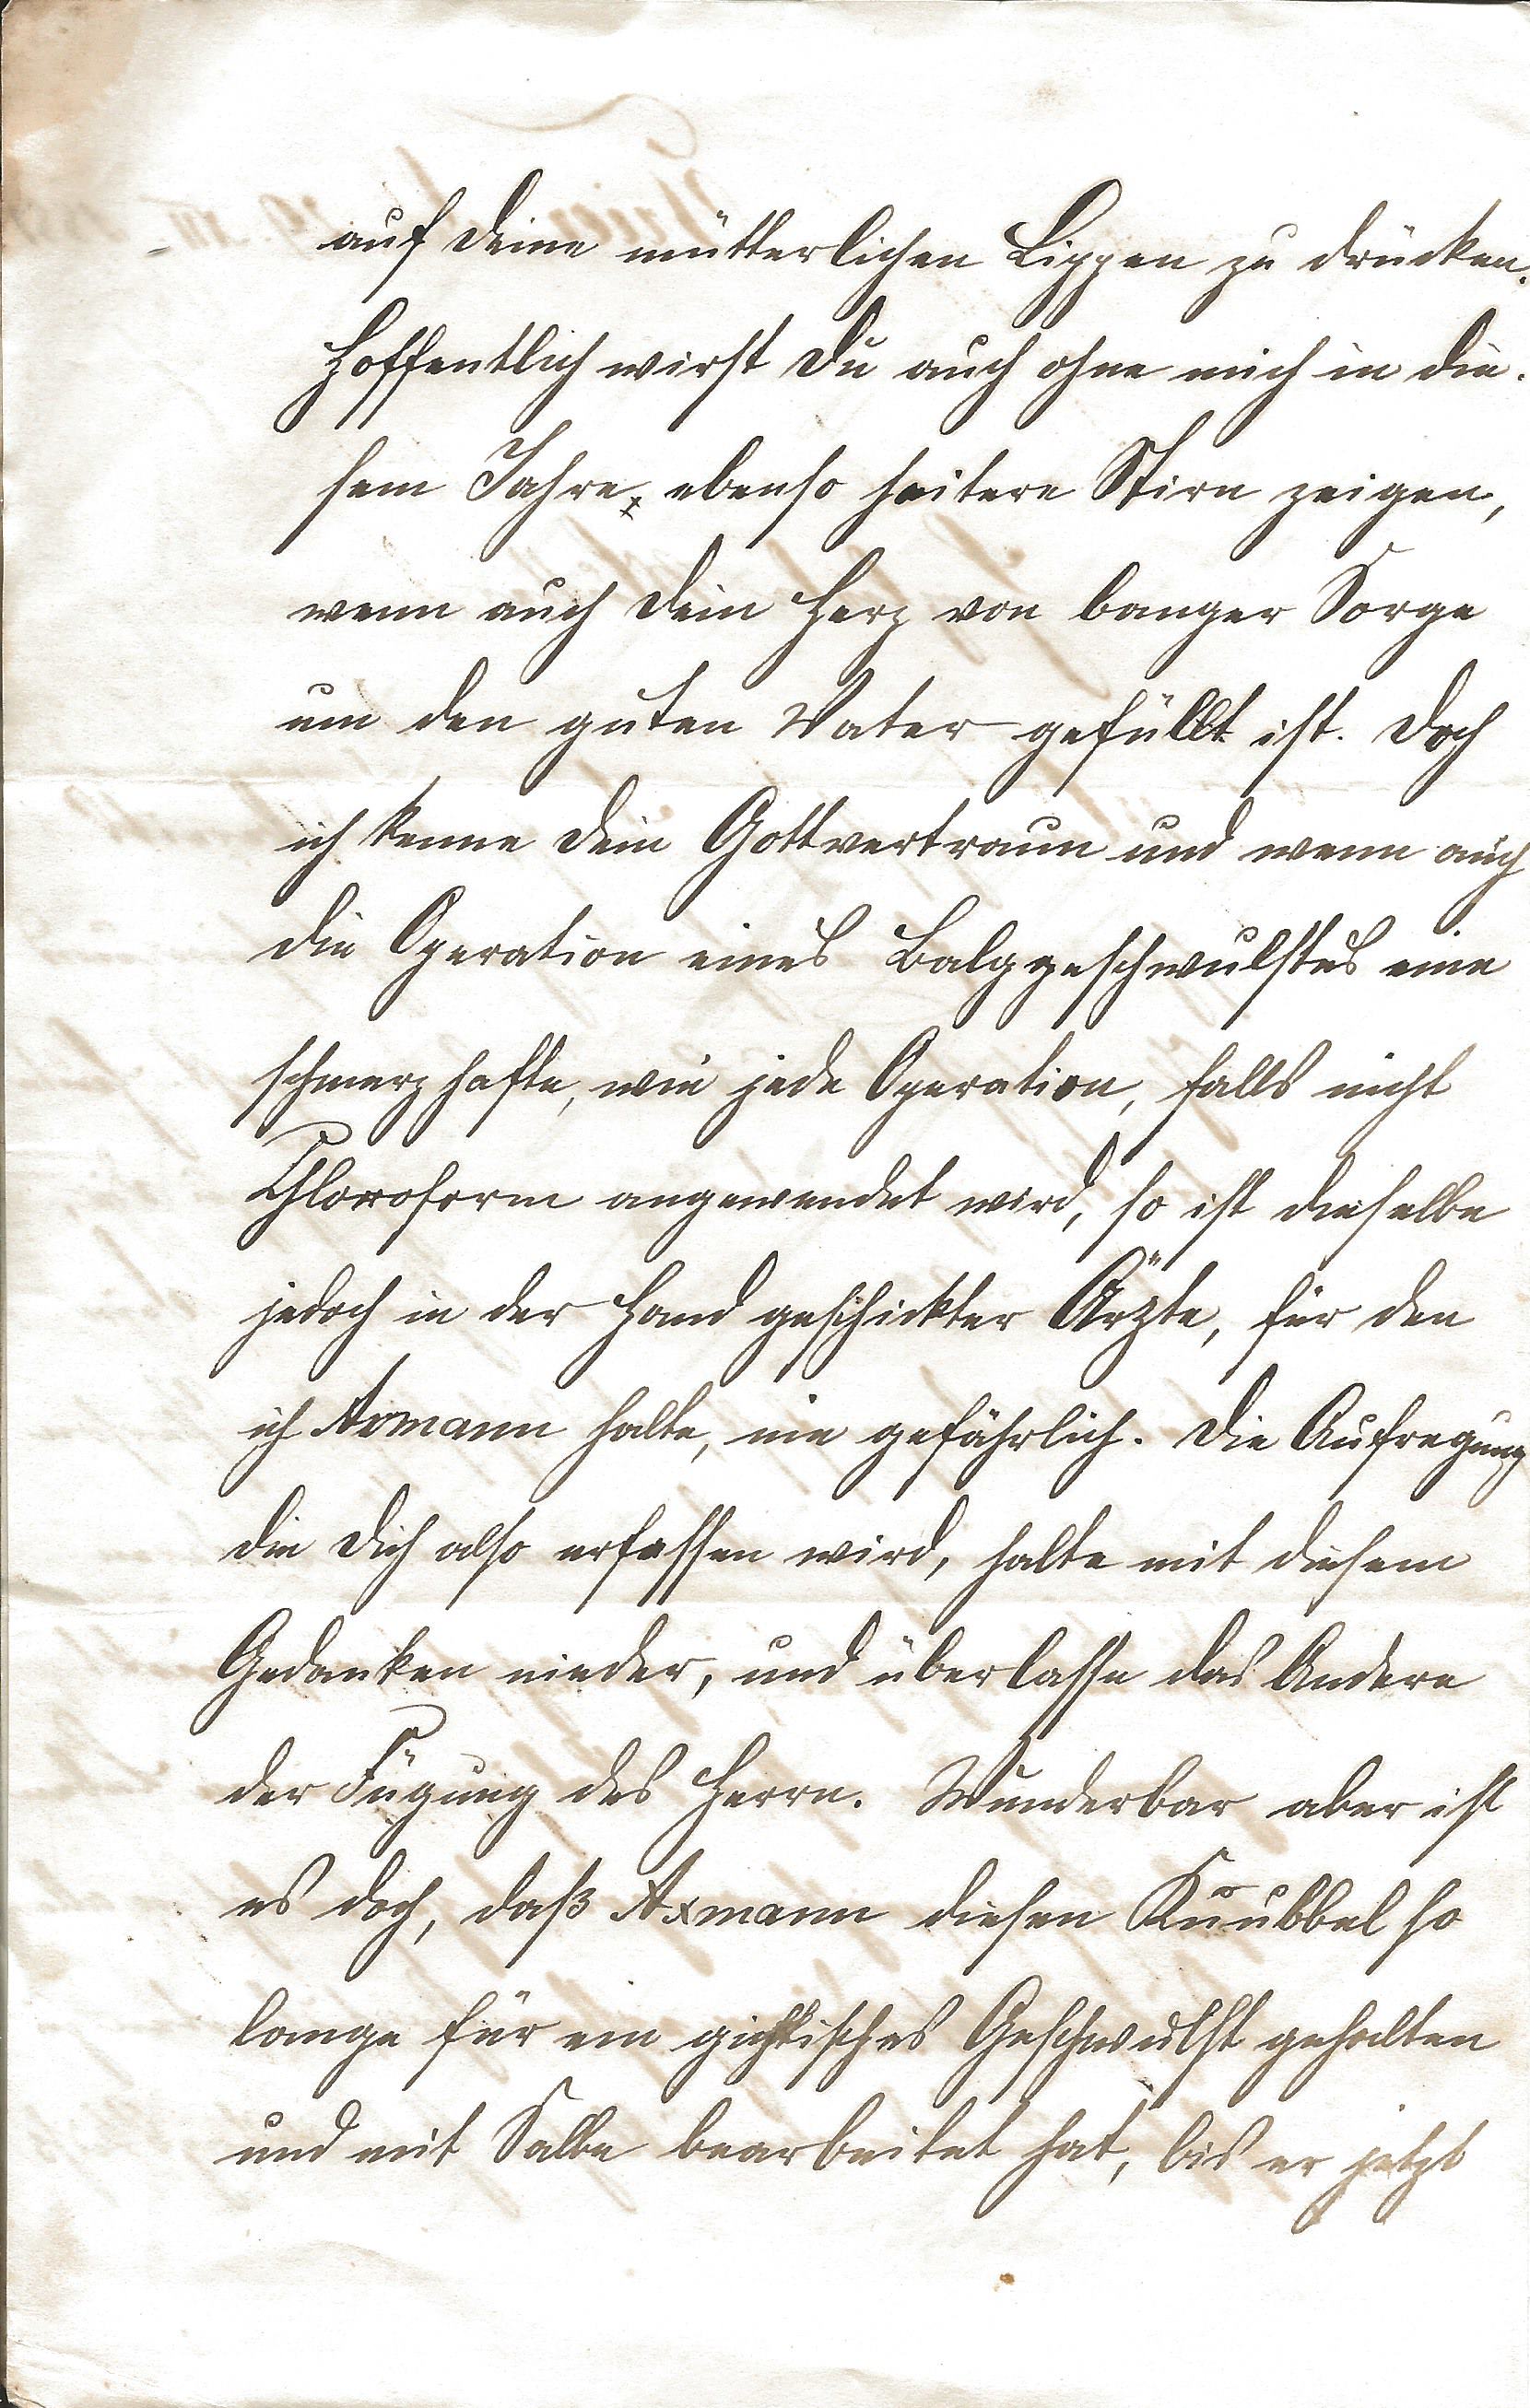 auf Deine mütterlichen Lippen zu drücken.
Hoffentlich wirst Du auch ohne mich in die-
sem Jahre ebenso heitere Stirn zeigen,
wenn auch Dein Herz von banger Sorge
um den guten Vater gefüllt ist. Doch
ich kenne Dein Gottvertraun und wenn auch
die Operation eines Balggeschwulstes eine
schmerzhafte, wie jede Operation, falls nicht
Chloroform angewendet wird, so ist dieselbe
jedoch in der Hand geschickter Ärzte, für den
ich Axmann halte, nie gefährlich. Die Aufregung
die Dich also erfassen wird, halte mit diesem
Gedanken nieder, und überlasse das Andere
der Fügung des Herrn. Wunderbar aber ist
es doch, daß Axmann diesen Knubbel so
lange für ein gichtisches Geschwulst gehalten
und mit Salbe bearbeitet hat, bis er jetzt